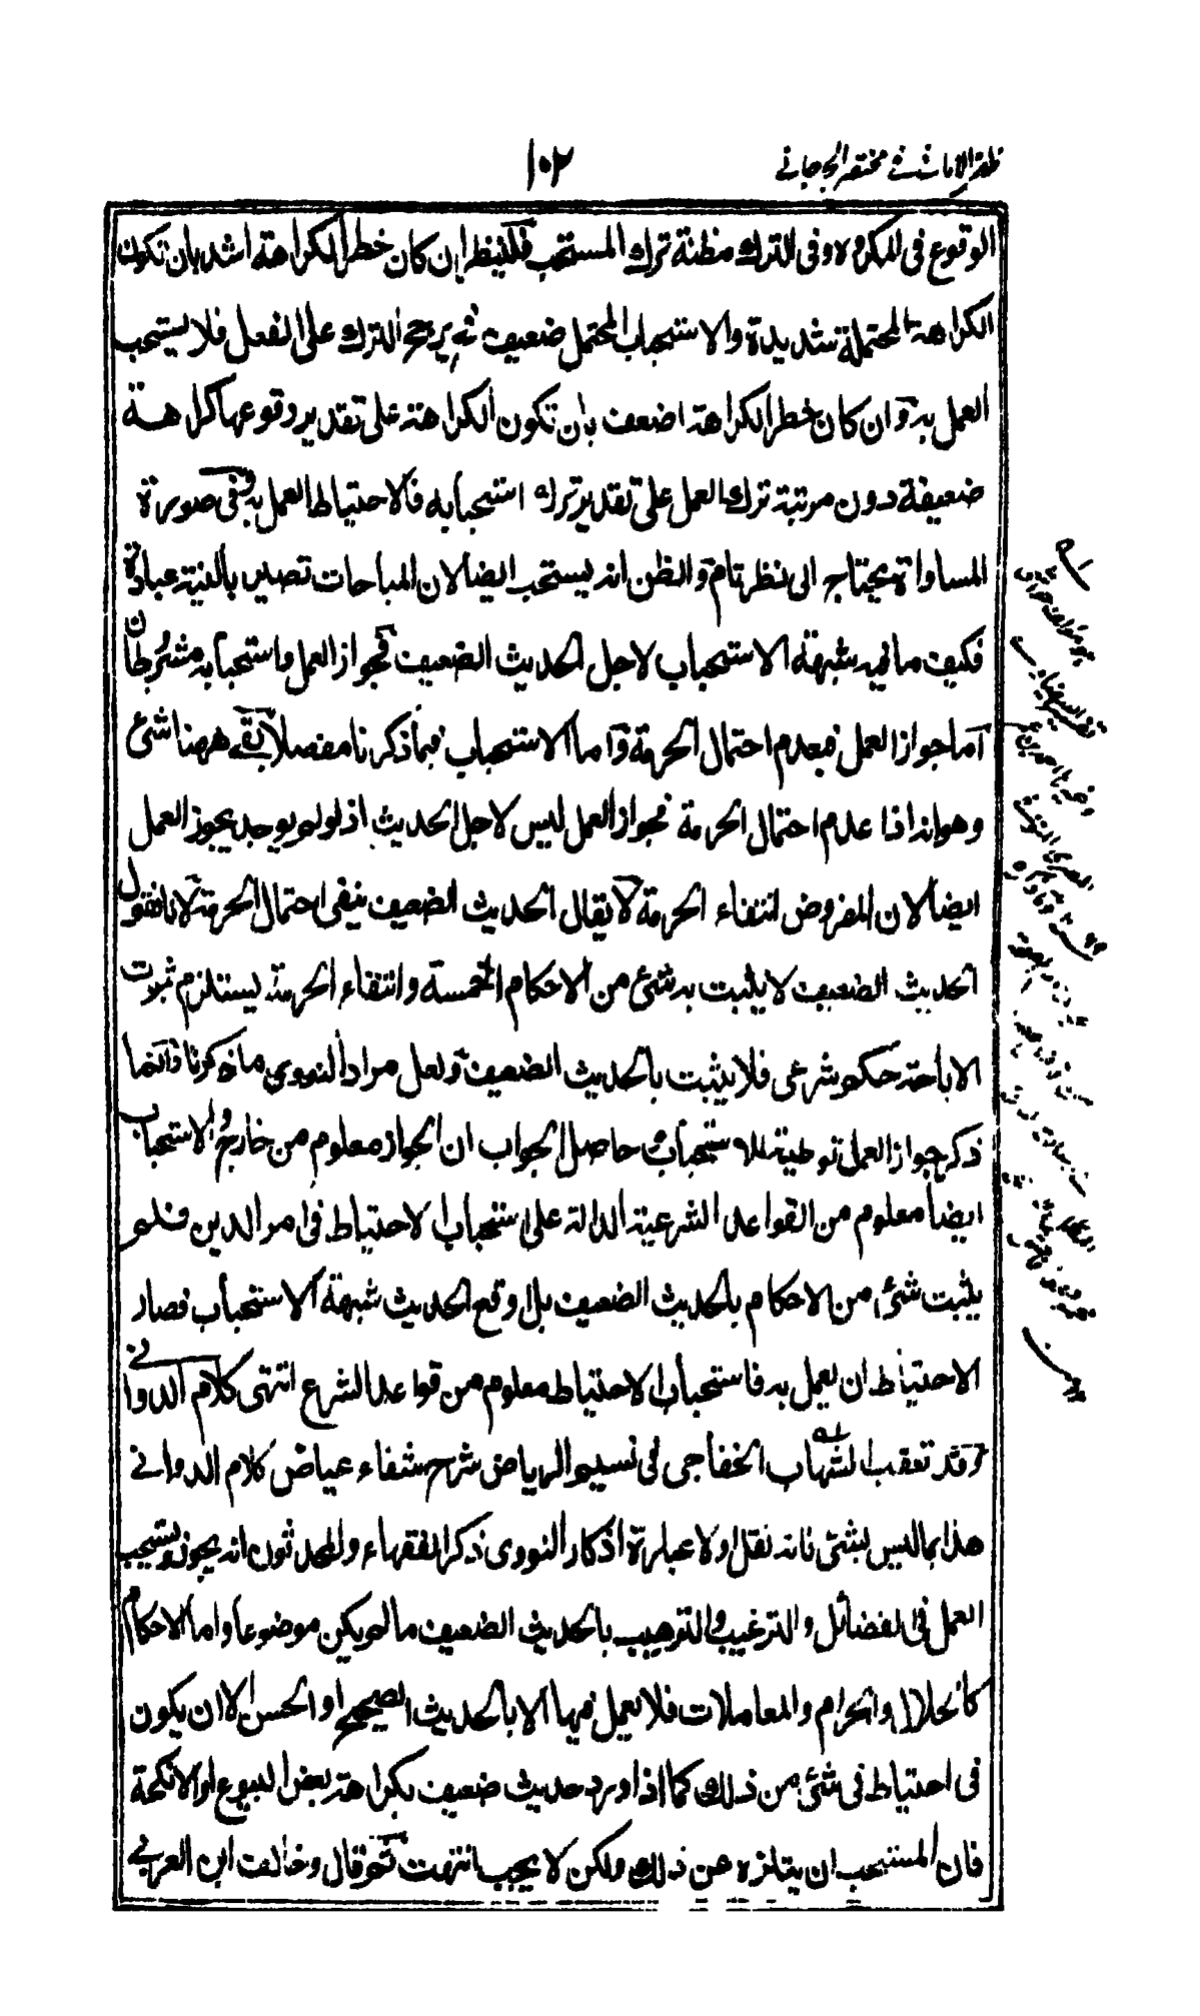 ظفر الامانى فى مختصر الجرجانى
١٠٢
الوقوع فى المكروه وفى الترك مظنة ترك المستحب فلينظر ان كان خطر الكراهة اشد بان تكون
الكراهة المحتملة شديدة والاستحباب المحتمل ضعيف ثم يرجح الترك على الفعل فلا يستحب
العمل به وان كان خطر الكراهة اضعف بان تكون الكراهة على تقدير وقوعها كراهة
ضعيفة دون مرتبة ترك العمل على تقدير ترك استحبابه فالاحتياط العمل به وفى صورة
المساواة يحتاج الى نظر تام والظن انه يستحب ايضا لان المباحات تصير بالنية عبادة
فكيف ما فيه شبهة الاستحباب لاجل الحديث الضعيف فجواز العمل واستحبابه مشروطان
اما جواز العمل فبعدم احتمال الحرمة واما الاستحباب فبما ذكرنا مفصلا بقى ههنا شئ
وهو انه اذا عدم احتمال الحرمة فجواز العمل ليس لاجل الحديث اذ لو لم يوجد يجوز العمل
ايضا لان المفروض انتفاء الحرمة لا يقال الحديث الضعيف ينفى احتمال الحرمة لانا نقول
الحديث الضعيف لا يثبت به شئ من الاحكام الخمسة وانتفاء الحرمة يستلزم ثبوت
الاباحة حكم شرعى فلا يثبت بالحديث الضعيف ولعل مراد النووى ما ذكرنا وانما
ذكر جواز العمل توطية للاستحباب وحاصل الجواب ان الجواز معلوم من خارج والاستحباب
ايضا معلوم من القواعد الشرعية الدالة على استحباب الاحتياط فى امر الدين فلم
يثبت شئ من الاحكام بالحديث الضعيف بل اوقع الحديث شبهة الاستحباب فصار
الاحتياط ان يعمل به فاستحباب الاحتياط معلوم من قواعد الشرع انتهى كلام الدوانى
وقد تعقبه الشهاب الخفاجى فى نسيم الرياض شرح شفاء عياض كلام الدوانى
هذا بما ليس بشئ فانه نقل اولا عبارة اذكار النووى ذكر الفقهاء والمحدثون انه يجوز ويستحب
العمل فى الفضائل والترغيب والترهيب بالحديث الضعيف ما لم يكن موضوعا واما الاحكام
كالحلال والحرام والمعاملات فلا يعمل فيها الا بالحديث الصحيح او الحسن الا ان يكون
فى احتياط فى شئ من ذلك كما اذا ورد حديث ضعيف بكراهة بعض البيوع او الانكحة
فان المستحب ان يتنزه عن ذلك ولكن لا يجب انتهت ثم قال وخالف ابن العربى